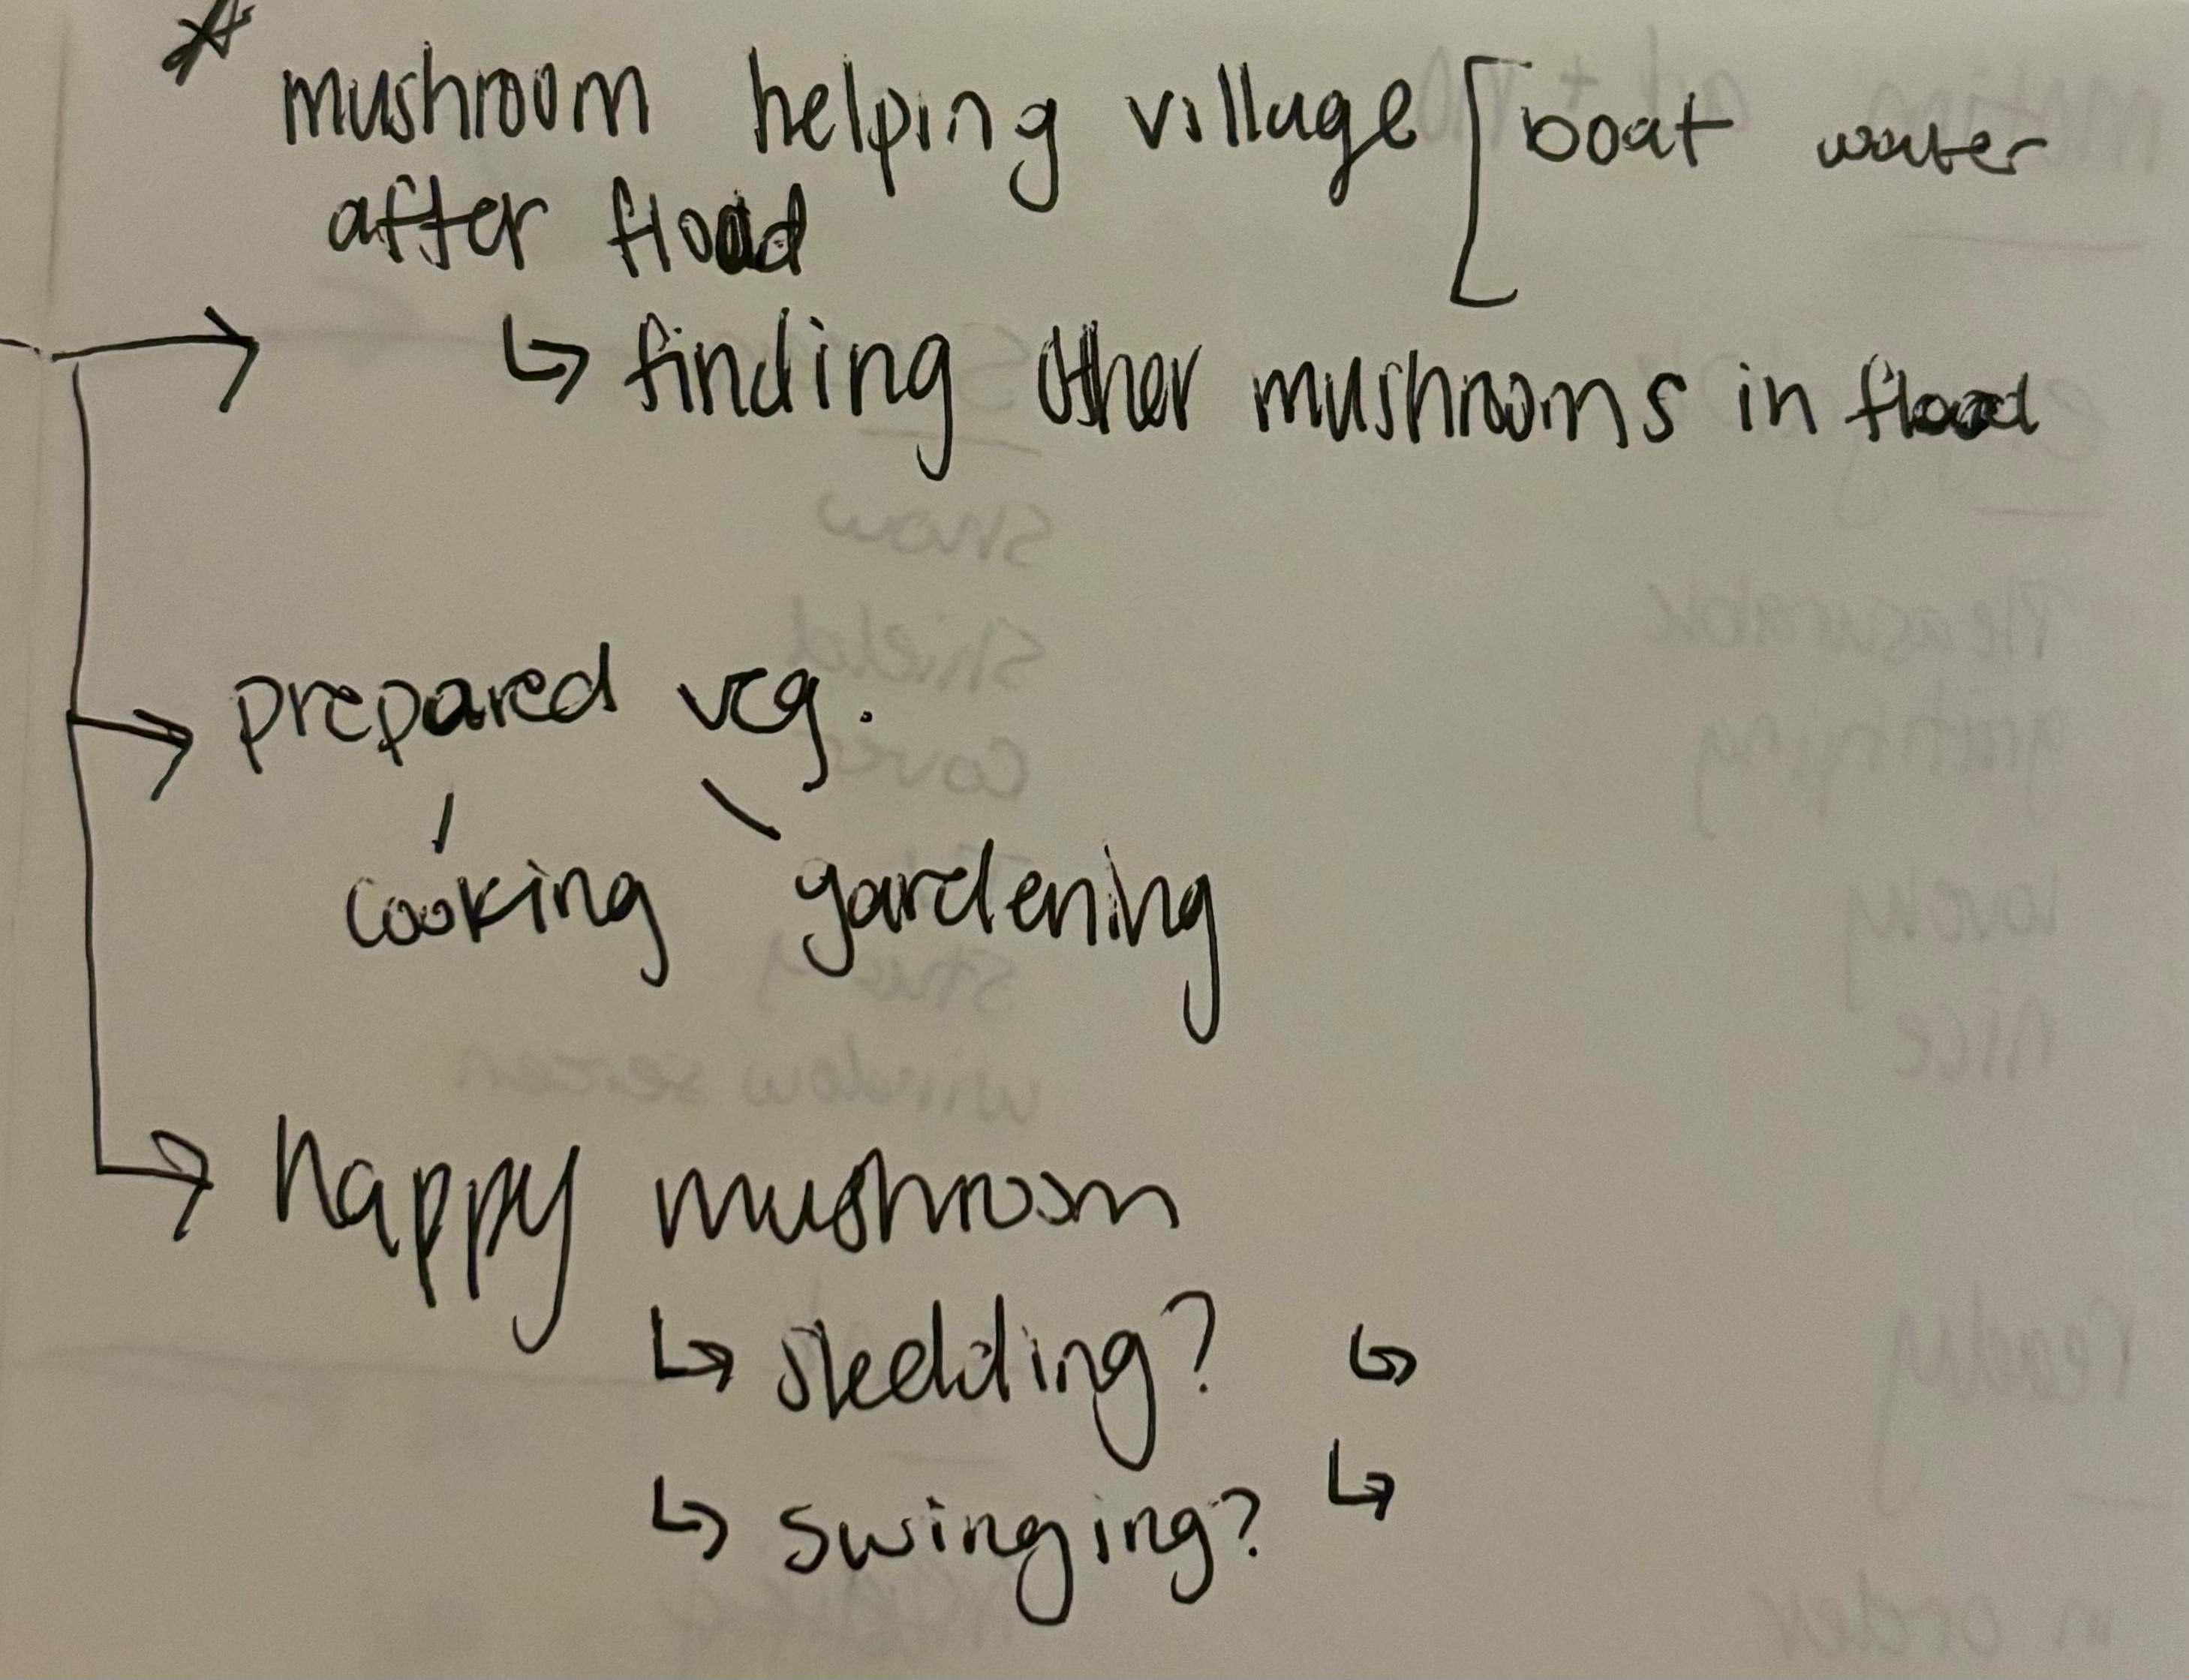 * mushroom helping village [ boat water
after flood
→ ↳ finding other mushrooms in flood
→ prepared veg.
cooking gardening
→ happy mushroom
↳ sledding? ↳
↳ swinging? ↳